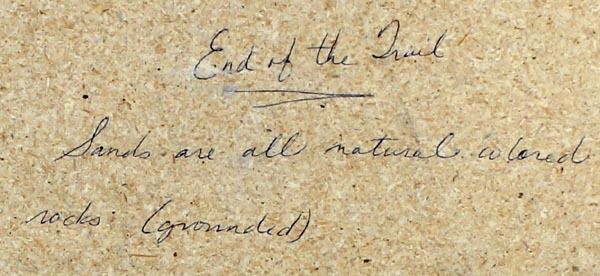 End of the Trail
Sands are all natural colored
rocks (grounded)